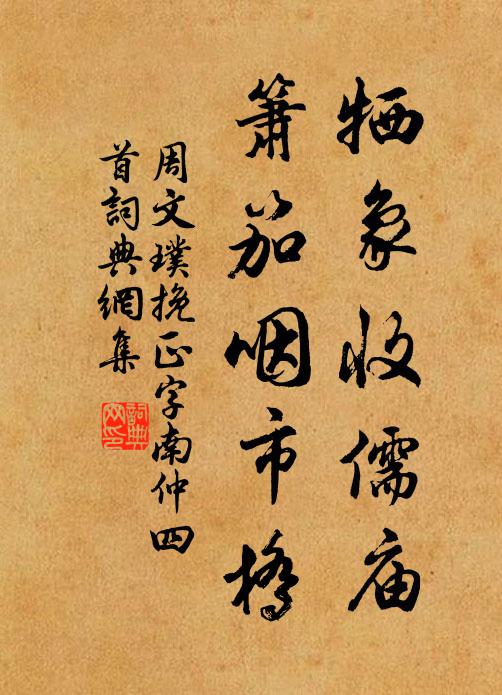 牺象收儒庙
箫笳咽市桥
周文璞挽正字南仲四
首詞典網集
詞典
网印